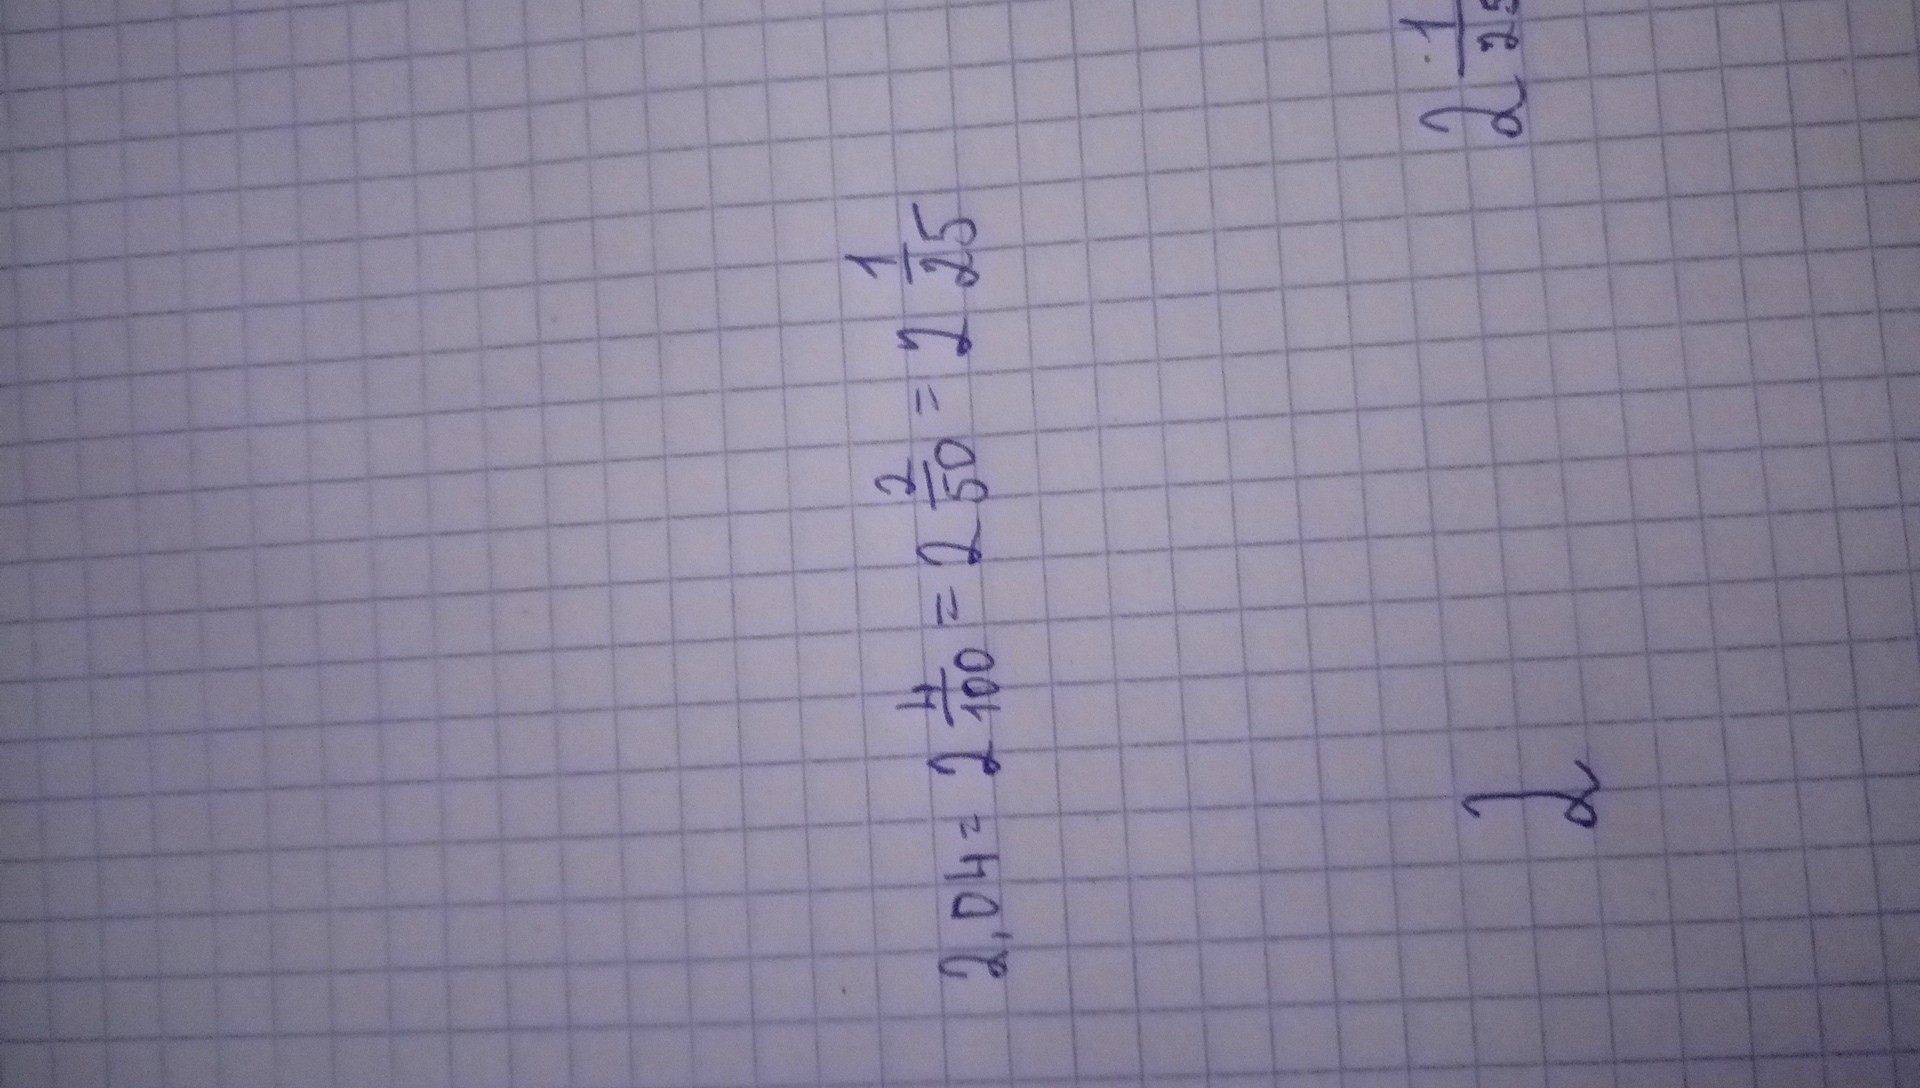 2,04 = 2 4/100 = 2 2/50 = 2 1/25
2 2 1/25